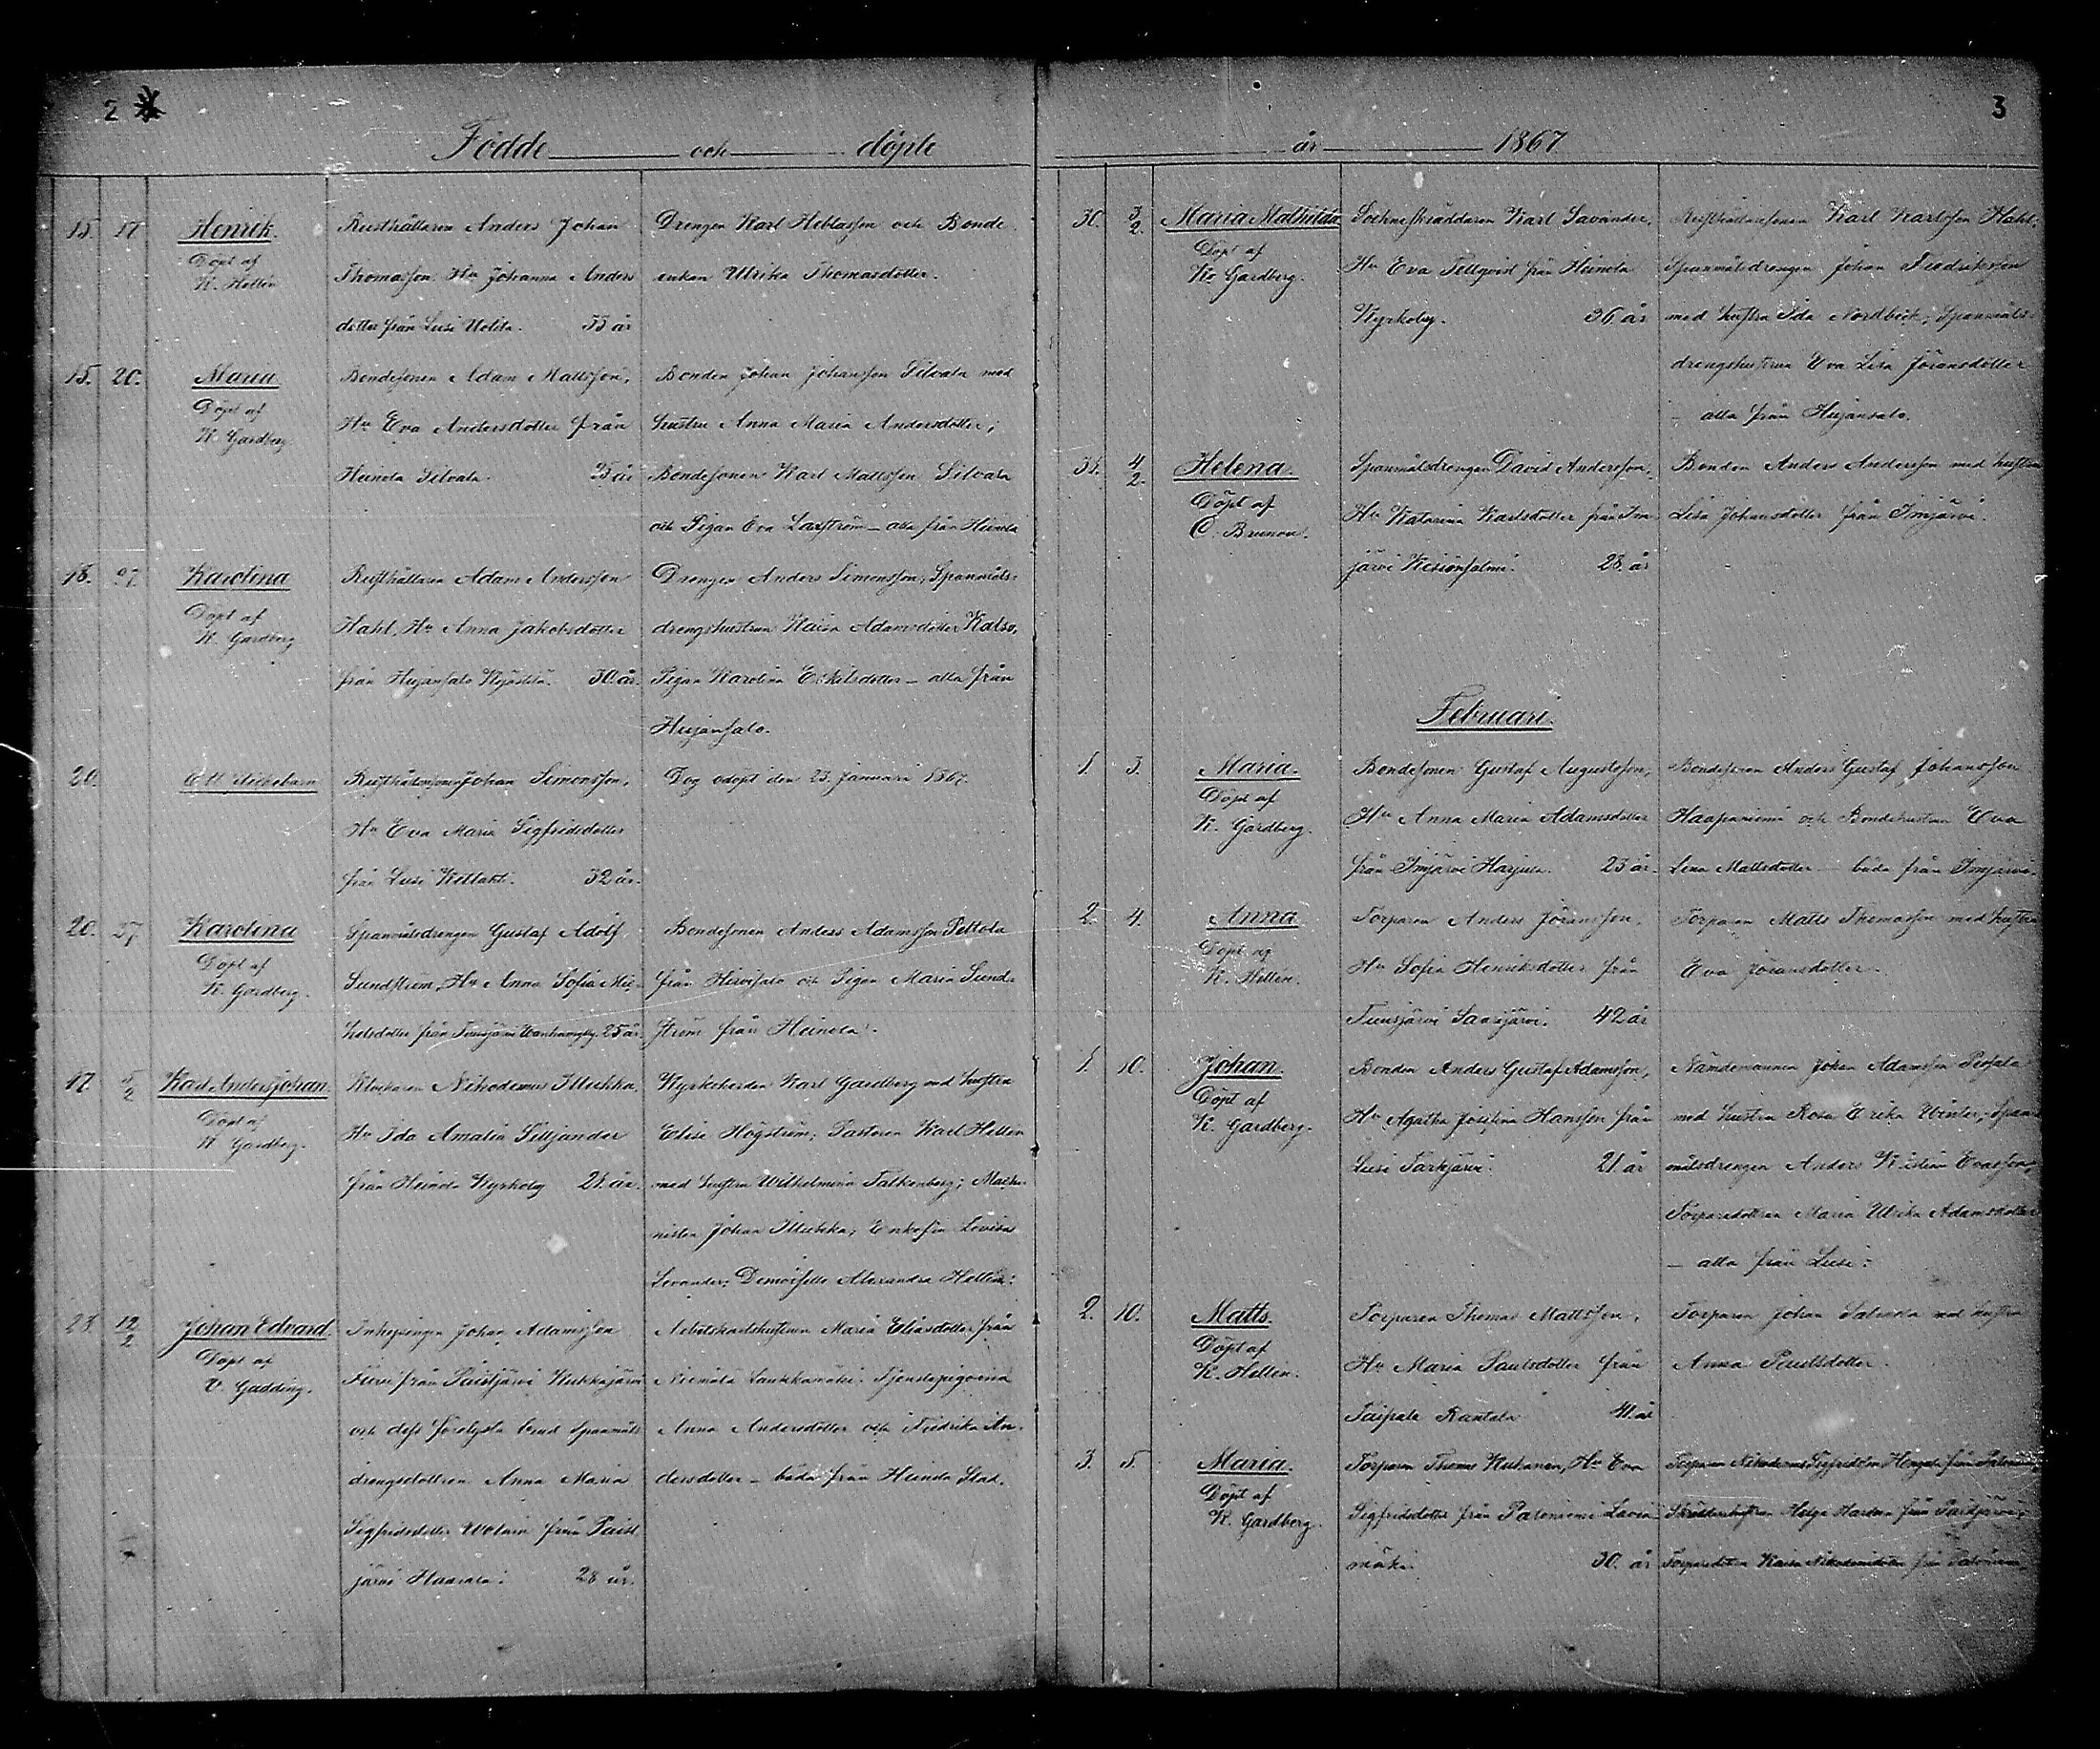 2
Födde och döpte
15. 17 Henrik.
Döpt af
K. Hellén
Rusthållaren Anders Johan
Thomasson. Hu Johanna Anders
dotter från Lusi Uolila. 33 år
Drengen Karl och Bonde
enkan Ulrika Thomasdotter.
15. 20. Maria
Döpt af
K. Gardberg
Bondesonen Adam Mattsson,
Hu Eva Andersdotter från
Heinola Silvala. 25 år
Bonden Johan Johansson Silvala med
hustru Anna Maria Andersdotter;
Bondesonen Karl Mattsson Silvala
och Pigan Eva Laxström – alla från Heinola
18. 27. Karolina
Döpt af
K. Gardberg
Rusthållaren Adam Andersson
Hahl, Hu Anna Jakobsdotter
från Hujansalo 30 år.
Drengen Anders Simonsson; Spanmåls-
drengshustrun Kaisa Adamsdotter Katso,
Pigan Karolina Eskilsdotter – alla från
Hujansalo.
20. Ett flickebarn
Johan Simonsson,
Hu Eva Maria Sigfridsdotter
från Lusi Kellaht. 32 år.
Dog odöpt den 23. Januari 1867.
20. 27 Karolina
Döpt af
K. Gardberg.
Spanmålsdrengen Gustaf Adolf
Sundström, Hu Anna Sofia Mi-
kelsdotter från 25 år.
Bondesonen Anders Adamsson Peltola
från Hirvisalo och Pigan Maria Sund-
ström från Heinola.
17. 5/2 Karl Anders Johan.
Döpt af
K Gardberg.
Klockaren Nikodemus Ilischka,
Hu Ida Amalia Siljander
från Heinola Kyrkoby 21 år.
Kyrkoherden Karl Gardberg med hustru
Elise Högström; Pastoren Karl Hellén
med hustru Wilhelmina Falkenberg; Machi-
nisten Johan Ilischka; Enkefru Lovisa
Levander; Demoiselle Alexandra Hellén:
28. 12/2 Johan Edvard.
Döpt af
V. Gadding.
Inhysingen Johan Adamsson
från Paistjärvi Kukkajärvi
och dess förelysta brud Spanmåls
drengsdottren Anna Maria
Sigfridsdotter från Paist
järvi Haavala: 28 år.
Arbetskarlshustrun Maria Eliasdotter från
Niemälä Tjenstepigorna
Anna Andersdotter och Fredrika An-
dersdotter – båda från Heinola Stad.
3
år 1867
30. 3/2. Maria Mathilda
Döpt af
K. Gardberg.
Sockneskräddaren Karl Savander,
Hu Eva Tellqvist från Heinola
Kyrkoby. 36 år
Rusthållaresonen Karl Karlsson Hahl,
Spanmålsdrengen Johan Fredriksson
med hustru Ida Nordbeck; Spanmåls-
drengshustrun Eva Lisa Jöransdotter
– alla från Hujansalo.
31. 4/2. Helena.
Döpt af
C. Brunou.
Spanmålsdrengen David Andersson,
Hu Katarina Karlsdotter från Im-
järvi Kissonsalmi. 28. år
Bonden Anders Andersson med hustru
Lisa Johansdotter från Imjärvi.
Februari.
1. 3. Maria.
Döpt af
K. Gardberg.
Bondesonen Gustaf Augustsson,
Hu Anna Maria Adamsdotter
från Imjärvi Harjula. 23 år.
Bondesonen Anders Gustaf Johansson
Haapaniemi och Bondehustrun Eva
Lena Mattsdotter – båda från Imjärvi.
2. 4. Anna
Döpt af
K. Hellén.
Torparen Anders Jöransson,
Hu Sofia Henriksdotter från
Saarijärvi. 42 år
Torparen Matts Thomasson med hustru
Eva Jöransdotter.
1. 10. Johan.
Döpt af
K. Gardberg.
Bonden Anders Gustaf Adamsson,
Hu Agatha Josefina Hansson från
Lusi Särkjärvi. 21 år
Nämdemannen Johan Adamsson
med hustru Rosa Erika Winter; Span-
målsdrengen Anders Kristian Evasson,
Torparedottren Maria Ulrika Adamsdotter
– alla från Lusi:
2. 10. Matts.
Döpt af
K. Hellén.
Torparen Thomas Mattsson,
Hu Maria Paulsdotter från
Taipale Rantala 41. år
Torparen Johan med hustru
Anna Paulsdotter.
3. 5. Maria.
Döpt af
K. Gardberg.
Torparen Thomas Kukanen, Hu Eva
Sigfridsdotter från Paloniemi Lavia
mäki. 30. år
Torparen Nikodemus Sigfridsson från
Skräddarehustrun Helga från
Torparedottren Kaisa från